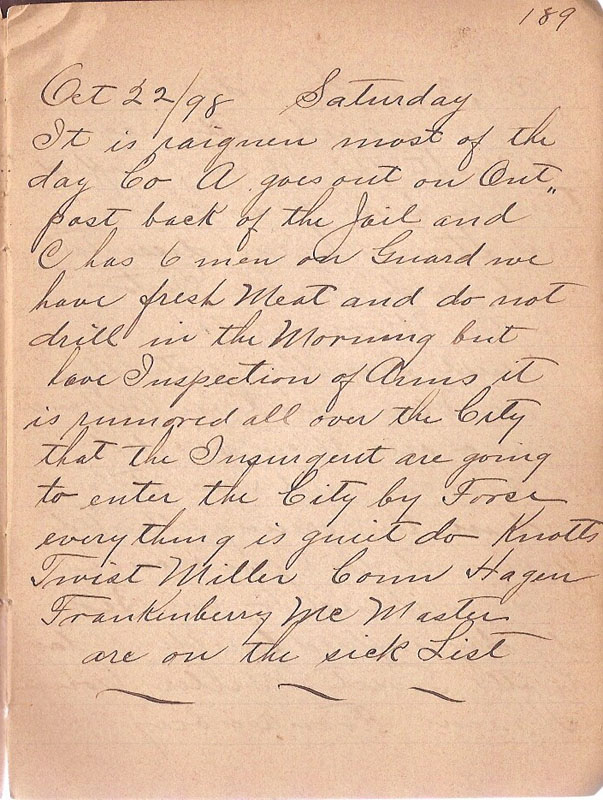 189
Oct 22/98 Saturday
It is raignen most of the
day Co A goes out on Out"
post back of the Jail and
C has 6 men on Guard we
have fresh Meat and do not
drill in the Morning but
have Inspection of Arms it
is rumored all over the City
that the Insurgent are going
to enter the City by Forse
everything is quiet do Knotts
Twist Miller Conn Hagen
Frankenberry Mc Master
are on the sick List